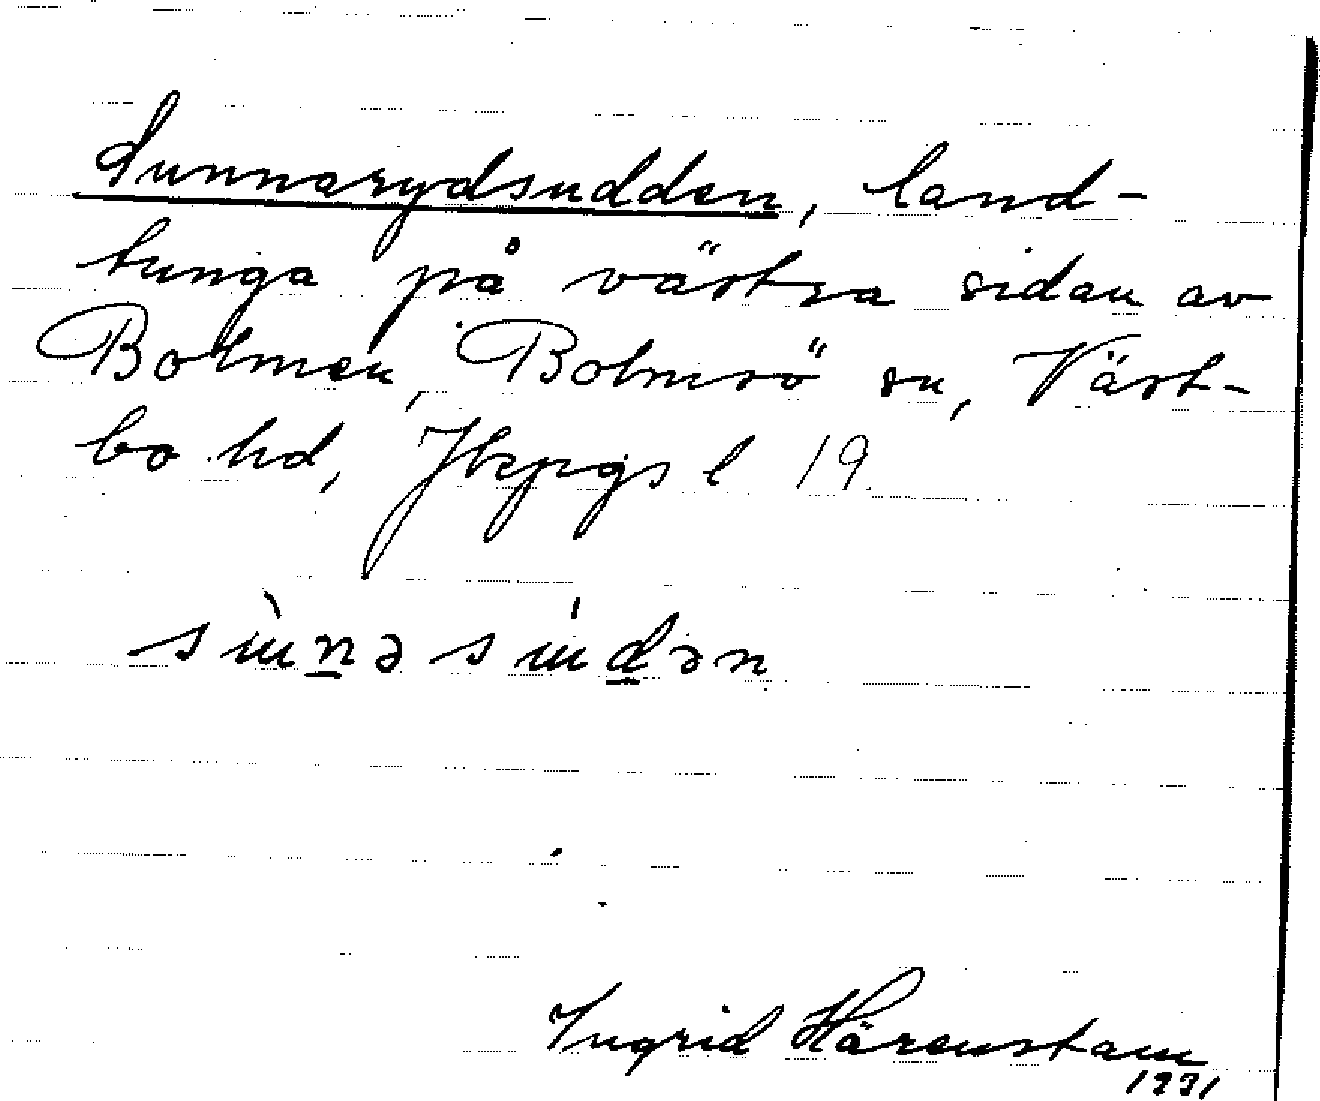 Sunnarydsudden, land-
tunga på västra sidan av
Bolmen, Bolmsö sn, Väst-
bo hd, Jkpgs l 19
Ingrid Härenstam
1931